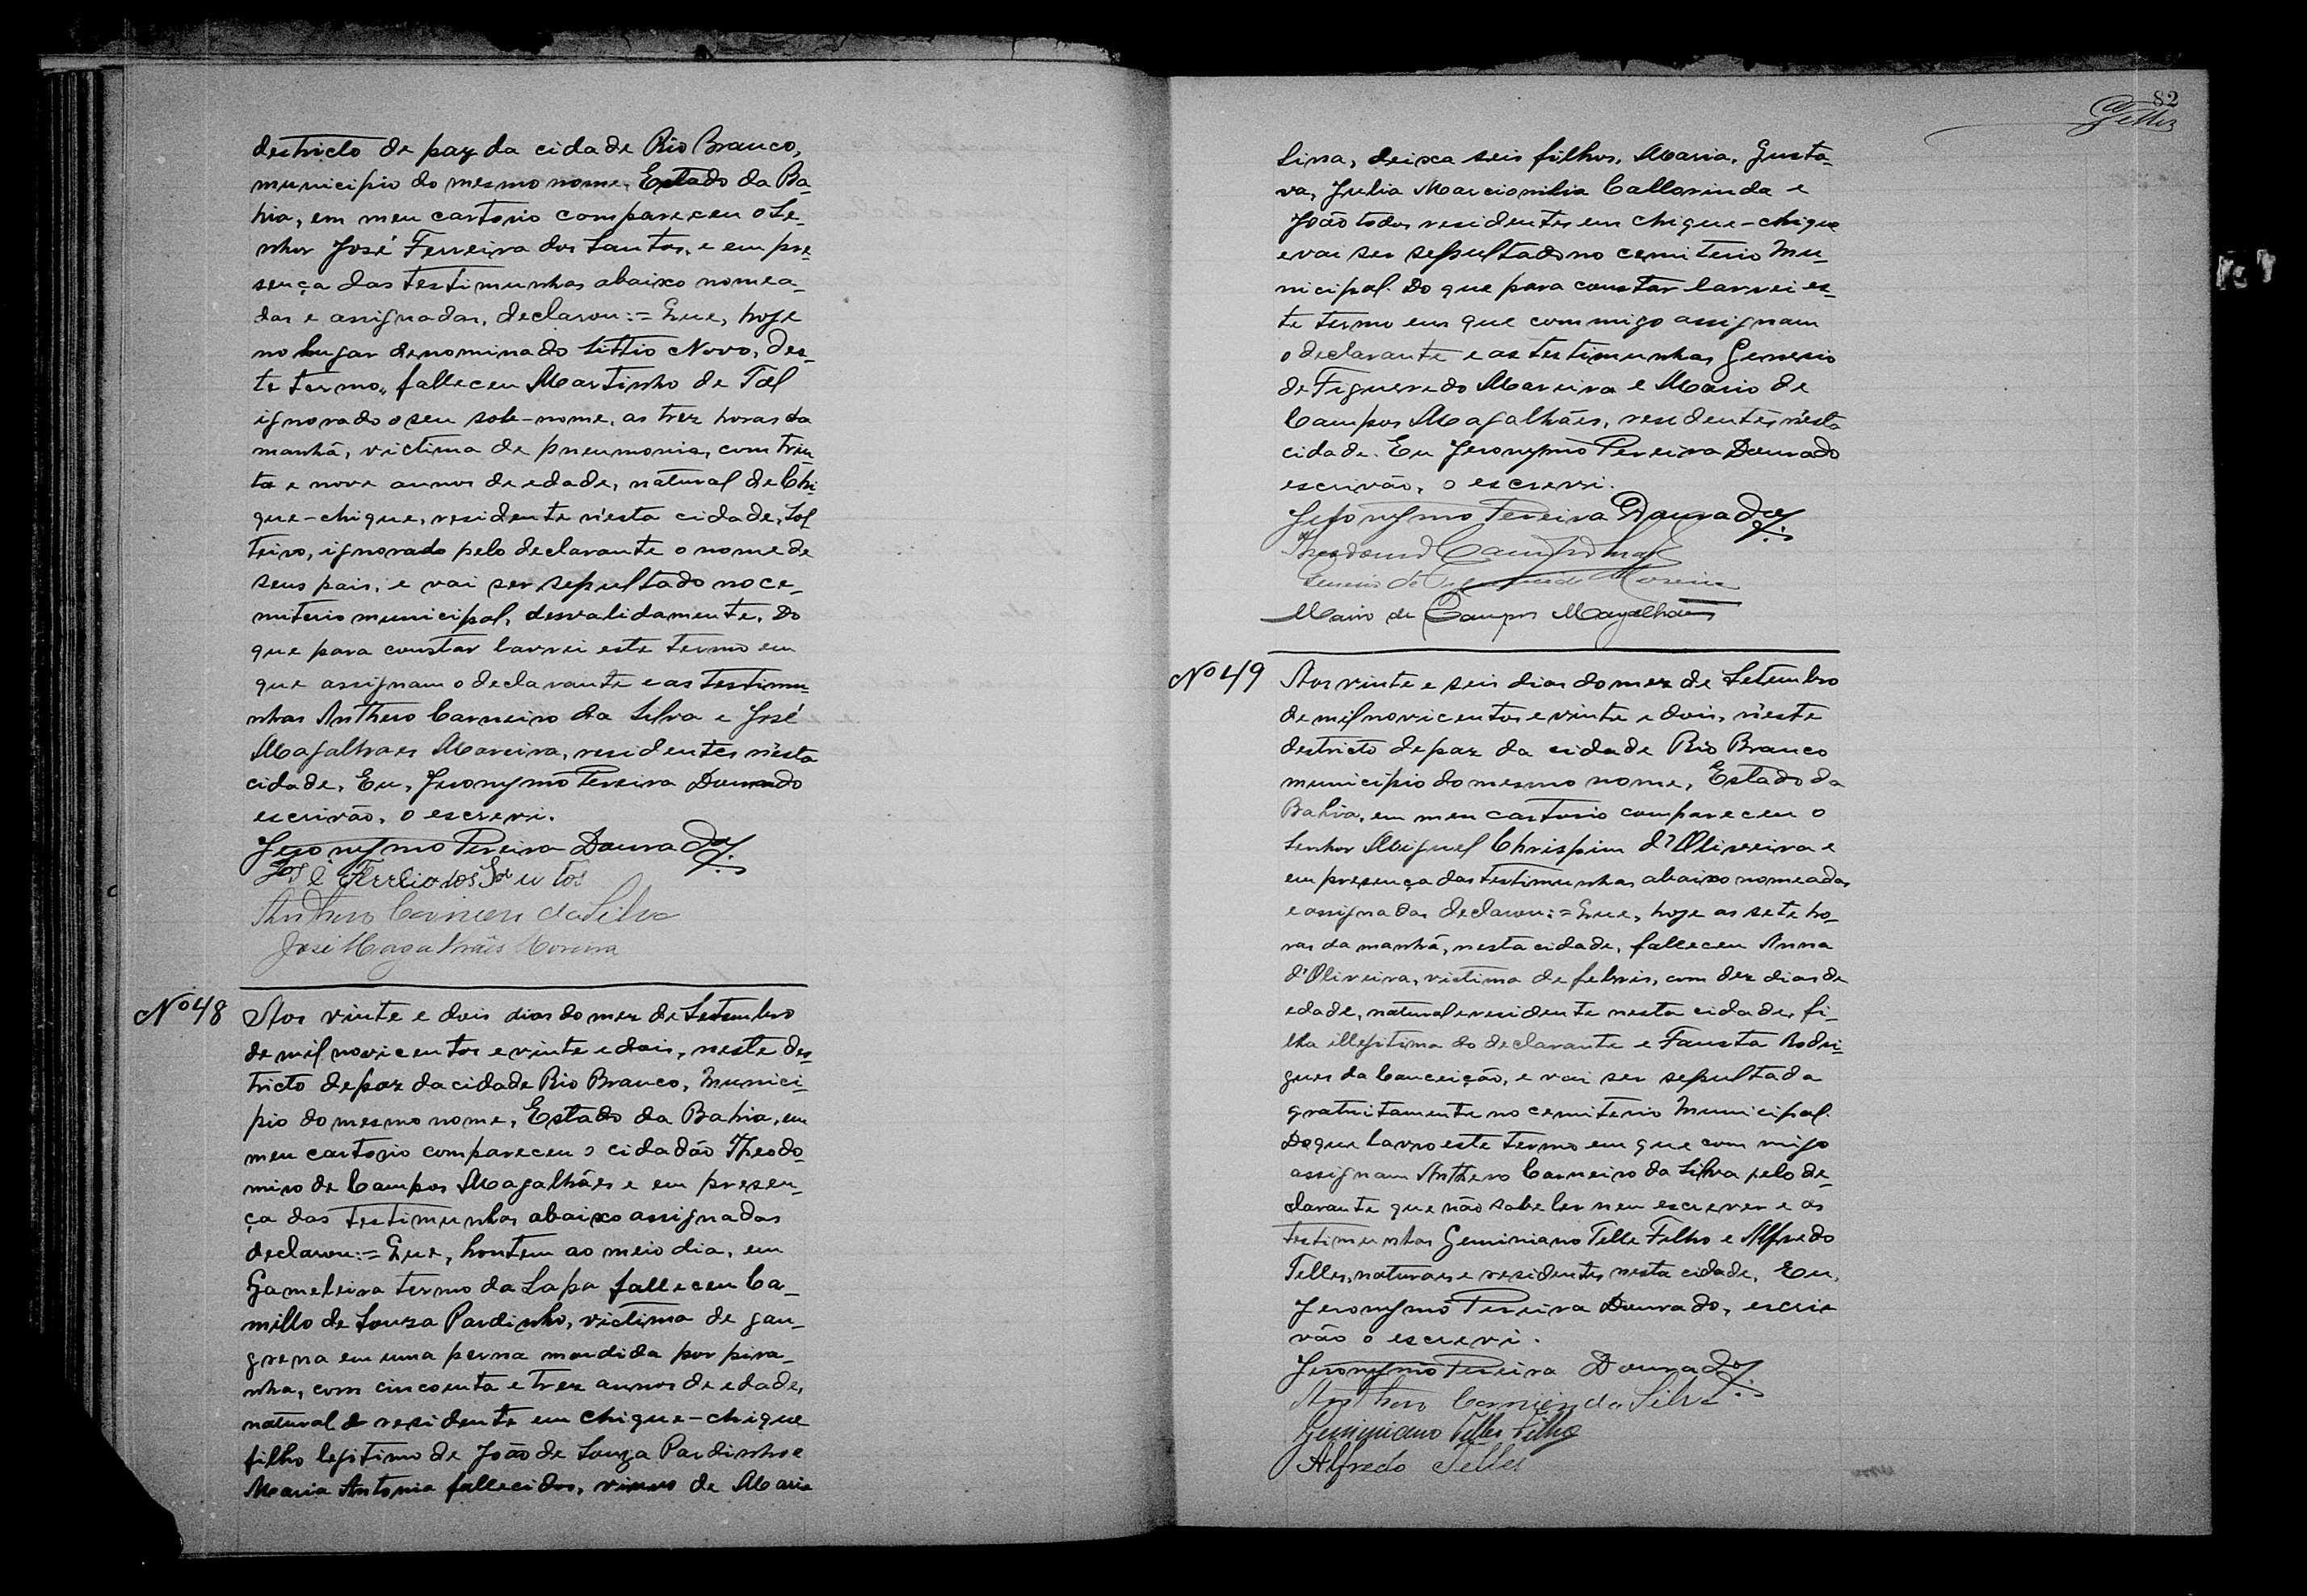 destricto de paz da cidade Rio Branco,
municipio do mesmo nome, Estado da Ba-
hia, em meu cartorio compareceu o Se-
nhor José Ferreira dos Santos, e em pre-
sença das testimunhas abaixo nomea-
das e assignadas, declarou:= Que, hoje
no lugar denominado Sittio Novo, des-
te termo, falleceu Martinho de Tal
ignorado o seu sobe-nome, as trez horas da
manhã, victima de pneumonia, com trin-
ta e nove annos de edade, natural de Chi-
que-chique, residente n'esta cidade, Sol
teiro, ignorado pelo declarante o nome de
seus pais, e vai ser sepultado no ce-
miterio municipal, desvalidamente. Do
que para constar lavrei este termo em
que assignam o declarante e as testimu-
nhas Anthero Carneiro da Silva e José
Magalhaes Moreira, residentes n'esta
cidade. Eu, Jeronymo Pereira Dourado
escrivão, o escrevi.
Jeronymo Pereira Dourado
José Ferreira dos Santos
Anthero Carneiro da Silva
José Magalhães Moreira
Nº 48 Aos vinte e dois dias do mez de Setembro
de mil novicentos e vinte e dois, neste des-
tricto de paz da cidade Rio Branco, Munici-
pio do mesmo nome, Estado da Bahia, em
meu cartorio compareceu o cidadão Theodo-
miro de Campos Magalhães e em presen-
ça das testimunhas abaixo assignadas
declarou:= Que, hontem ao meio dia, em
Gameleira termo da Lapa falleceu Ca-
millo de Souza Pardinho, victima de gan-
grena em uma perna mordida por pira-
nha, com cincoenta e trez annos de edade,
natural e residente em Chique-chique
filho legitimo de João de Souza Pardinho e
Maria Antonia fallecidos, viuvo de Maria
82
Telles
Lina, deixa seis filhos, Maria, Gusta-
va, Julia Marcionilia Callorinda e
João todos residentes em Chique-chique
e vai ser sepultado no cemiterio Mu-
nicipal. Do que para constar lavrei es-
te termo em que commigo assignam
o declarante e as testimunhas Genesio
de Figueredo Moreira e Mario de
Campos Magalhães, residentes n'esta
cidade. Eu Jeronymo Pereira Dourado
escrivão, o escrevi.
Jeronymo Pereira Dourado
Genesio de Figueredo Moreira
Mario de Campos Magalhães
Nº 49 Aos vinte e seis dias do mez de Setembro
de mil novicentos e vinte e dois, n'este
destricto de paz da cidade Rio Branco
municipio do mesmo nome, Estado da
Bahia, em meu cartorio compareceu o
Senhor Miguel Chrispim d'Oliveira e
em presença das testimunhas abaixo nomeadas
e assignadas declarou:= Que, hoje as sete ho-
ras da manhã, nesta cidade, falleceu Anna
d'Oliveira, victima de febris, com dez dias de
edade, natural e residente nesta cidade, fi-
lha illegitima do declarante e Fausta Rodri-
gues da Conceição, e vai ser sepultada
gratuitamente no cemiterio Municipal.
Do que lavro este termo em que com migo
assignam Anthero Carneiro da Silva pelo de-
clarante que não sabe ler nem escrever e as
testimunhas Geminiano Telle Filho e Alfredo
Telles, naturaes e residentes nesta cidade. Eu,
Jeronymo Pereira Dourado, escri-
vão o escrevi.
Jeronymo Pereira Dourado
Anthero Carneiro da Silva
Geminiano Telles Filho
Alfredo Telles